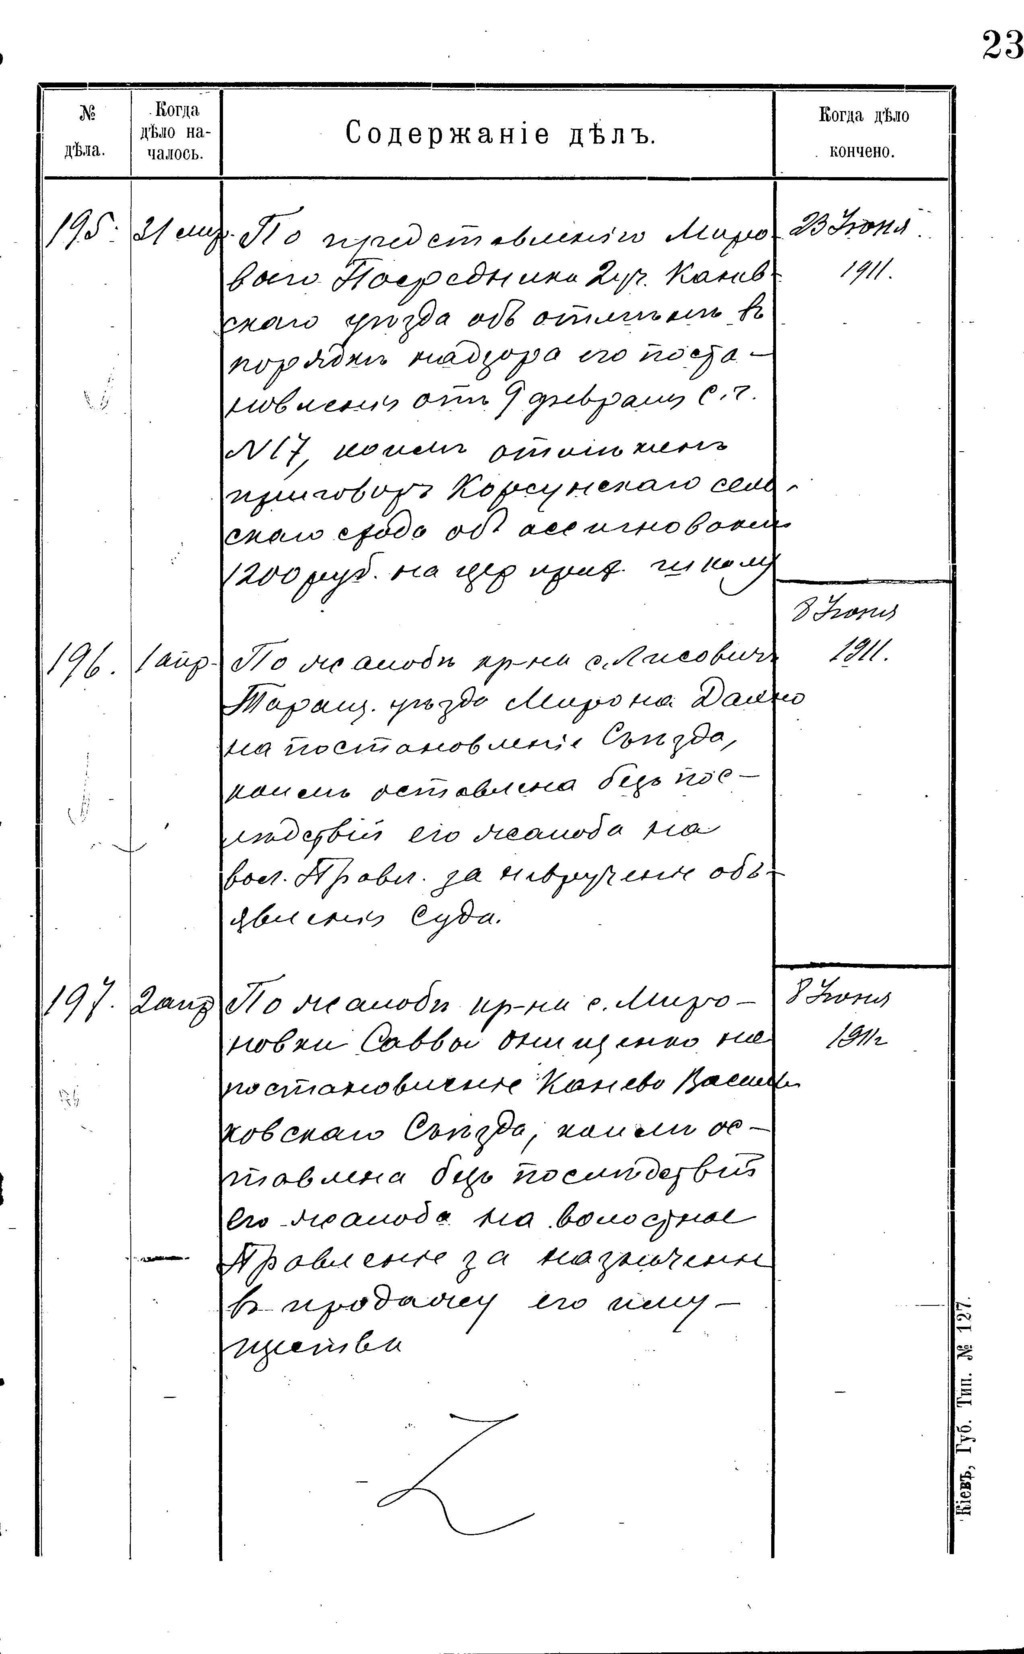 23
№ дѣла.
Когда дѣло началось.
Содержаніе дѣлъ.
Когда дѣло кончено.
195. 31 мар. По представленію Миро 23 Іюня
вого Посредника 2 уч. Канев- 1911.
скаго уѣзда объ отмѣнѣ въ
порядкѣ надзора его поста-
новленія отъ 9 февраля с. г.
N 17, коимъ отмѣненъ
приговоръ Корсунскаго сель-
скаго схода объ ассигнованіи
1200 руб. на цер прих. школу
8 Іюня
196. 1 апр. По жалобѣ кр-на с. Лисовичъ 1911.
Таращ. уѣзда Мирона
на постановленіе Съѣзда,
коимъ оставлена безъ пос-
лѣдствій его жалоба на
вол. Правл. за невручение объ-
явленія Суда.
197. 2 апр По жалобѣ кр-на с. Миро- 8 Іюня
новки Саввы Онищенко на 1911г
постановленіе Канево Василь
ковскаго Съѣзда, коимъ ос-
тавлена безъ послѣдствій
его жалоба на волостное
Правленіе за назначеніе
въ продажу его иму-
щества
Кіевъ, Губ. Тип. № 127.